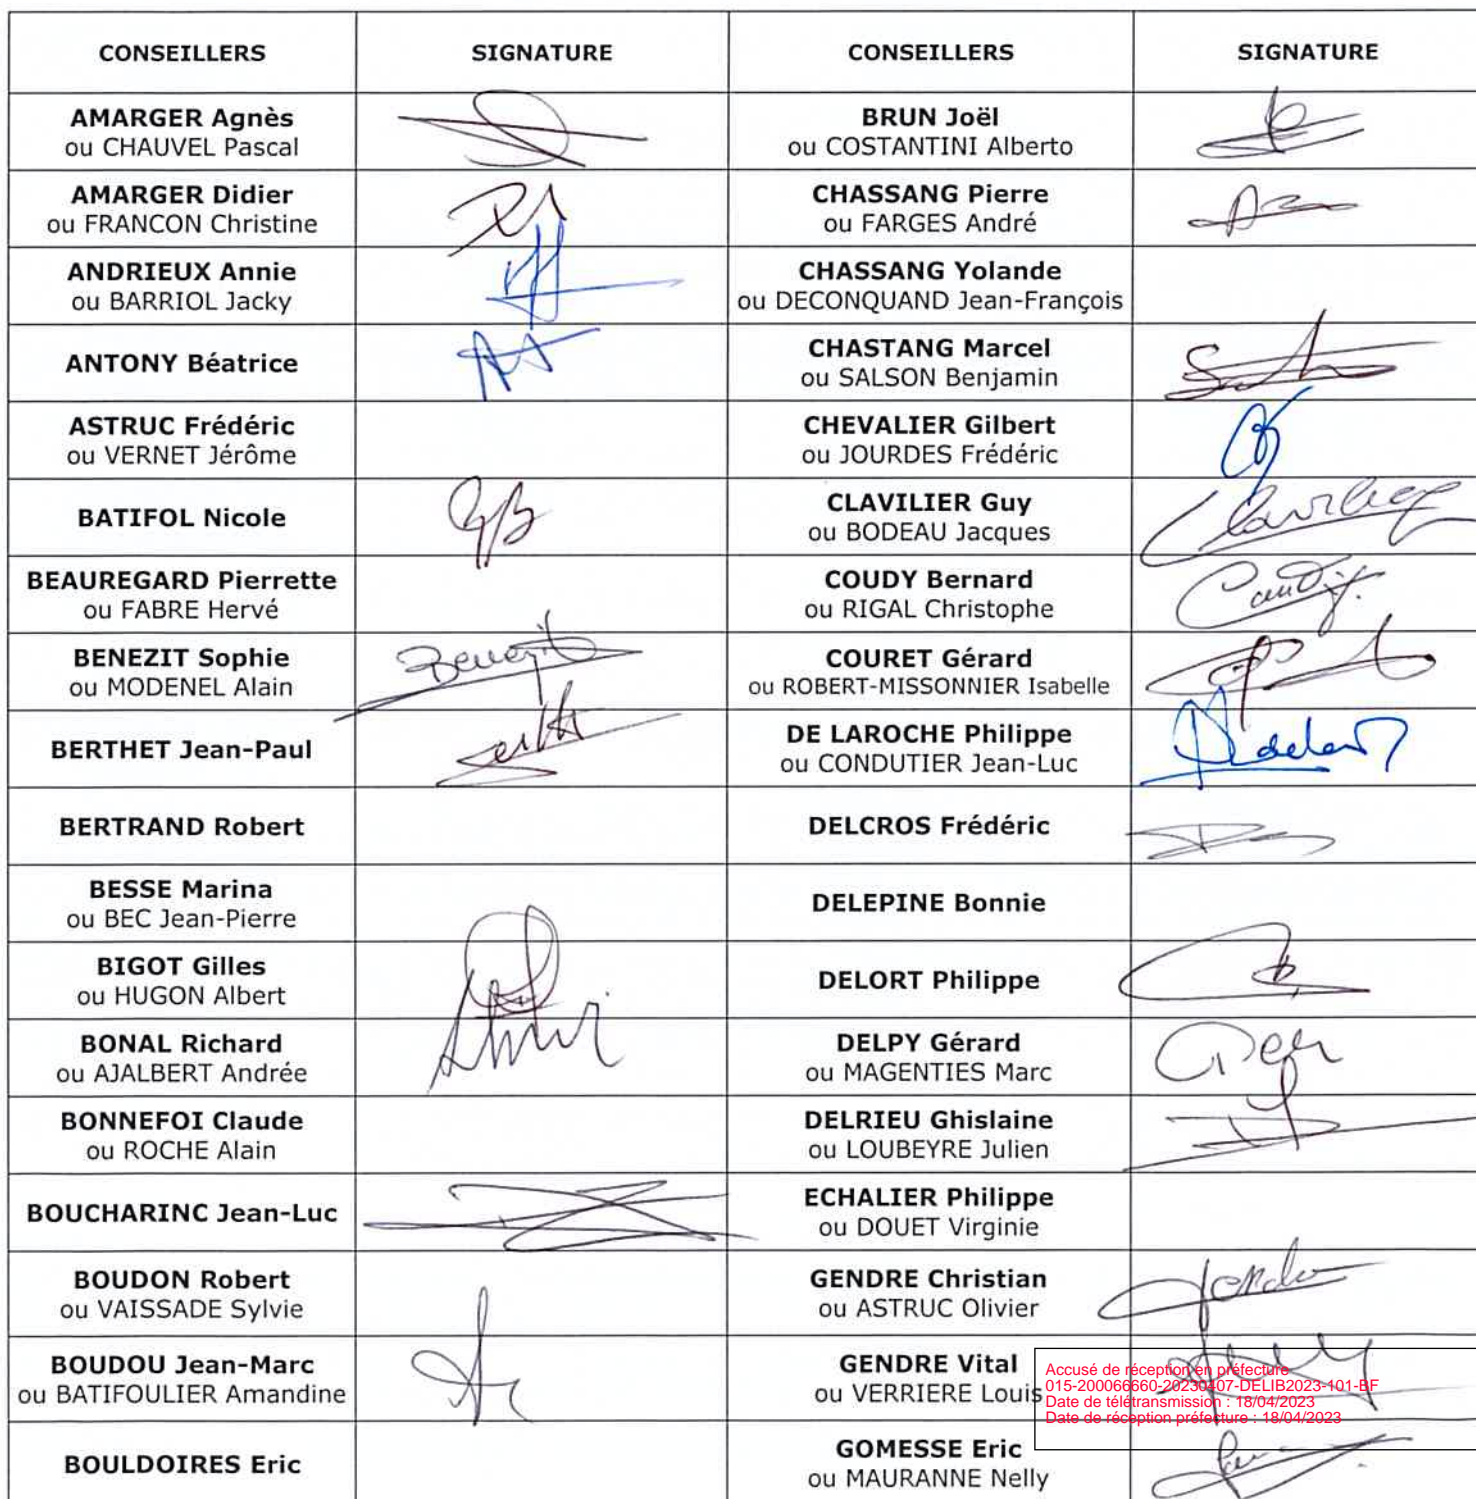 CONSEILLERS SIGNATURE CONSEILLERS SIGNATURE
AMARGER Agnès
ou CHAUVEL Pascal
BRUN Joël
ou COSTANTINI Alberto
AMARGER Didier
ou FRANCON Christine
CHASSANG Pierre
ou FARGES André
ANDRIEUX Annie
ou BARRIOL Jacky
CHASSANG Yolande
ou DECONQUAND Jean-François
ANTONY Béatrice
CHASTANG Marcel
ou SALSON Benjamin
ASTRUC Frédéric
ou VERNET Jérôme
CHEVALIER Gilbert
ou JOURDES Frédéric
BATIFOL Nicole
CLAVILIER Guy
ou BODEAU Jacques
BEAUREGARD Pierrette
ou FABRE Hervé
COUDY Bernard
ou RIGAL Christophe
BENEZIT Sophie
ou MODENEL Alain
Benezit
COURET Gérard
ou ROBERT-MISSONNIER Isabelle
BERTHET Jean-Paul
DE LAROCHE Philippe
ou CONDUTIER Jean-Luc
BERTRAND Robert
DELCROS Frédéric
BESSE Marina
ou BEC Jean-Pierre
DELEPINE Bonnie
BIGOT Gilles
ou HUGON Albert
DELORT Philippe
BONAL Richard
ou AJALBERT Andrée
DELPY Gérard
ou MAGENTIES Marc
BONNEFOI Claude
ou ROCHE Alain
DELRIEU Ghislaine
ou LOUBEYRE Julien
BOUCHARINC Jean-Luc
ECHALIER Philippe
ou DOUET Virginie
BOUDON Robert
ou VAISSADE Sylvie
GENDRE Christian
ou ASTRUC Olivier
BOUDOU Jean-Marc
ou BATIFOULIER Amandine
GENDRE Vital
ou VERRIERE Louis
Accusé de réception en préfecture
015-200066660-20230407-DELIB2023-101-BF
Date de télétransmission : 18/04/2023
Date de réception préfecture : 18/04/2023
BOULDOIRES Eric
GOMESSE Eric
ou MAURANNE Nelly